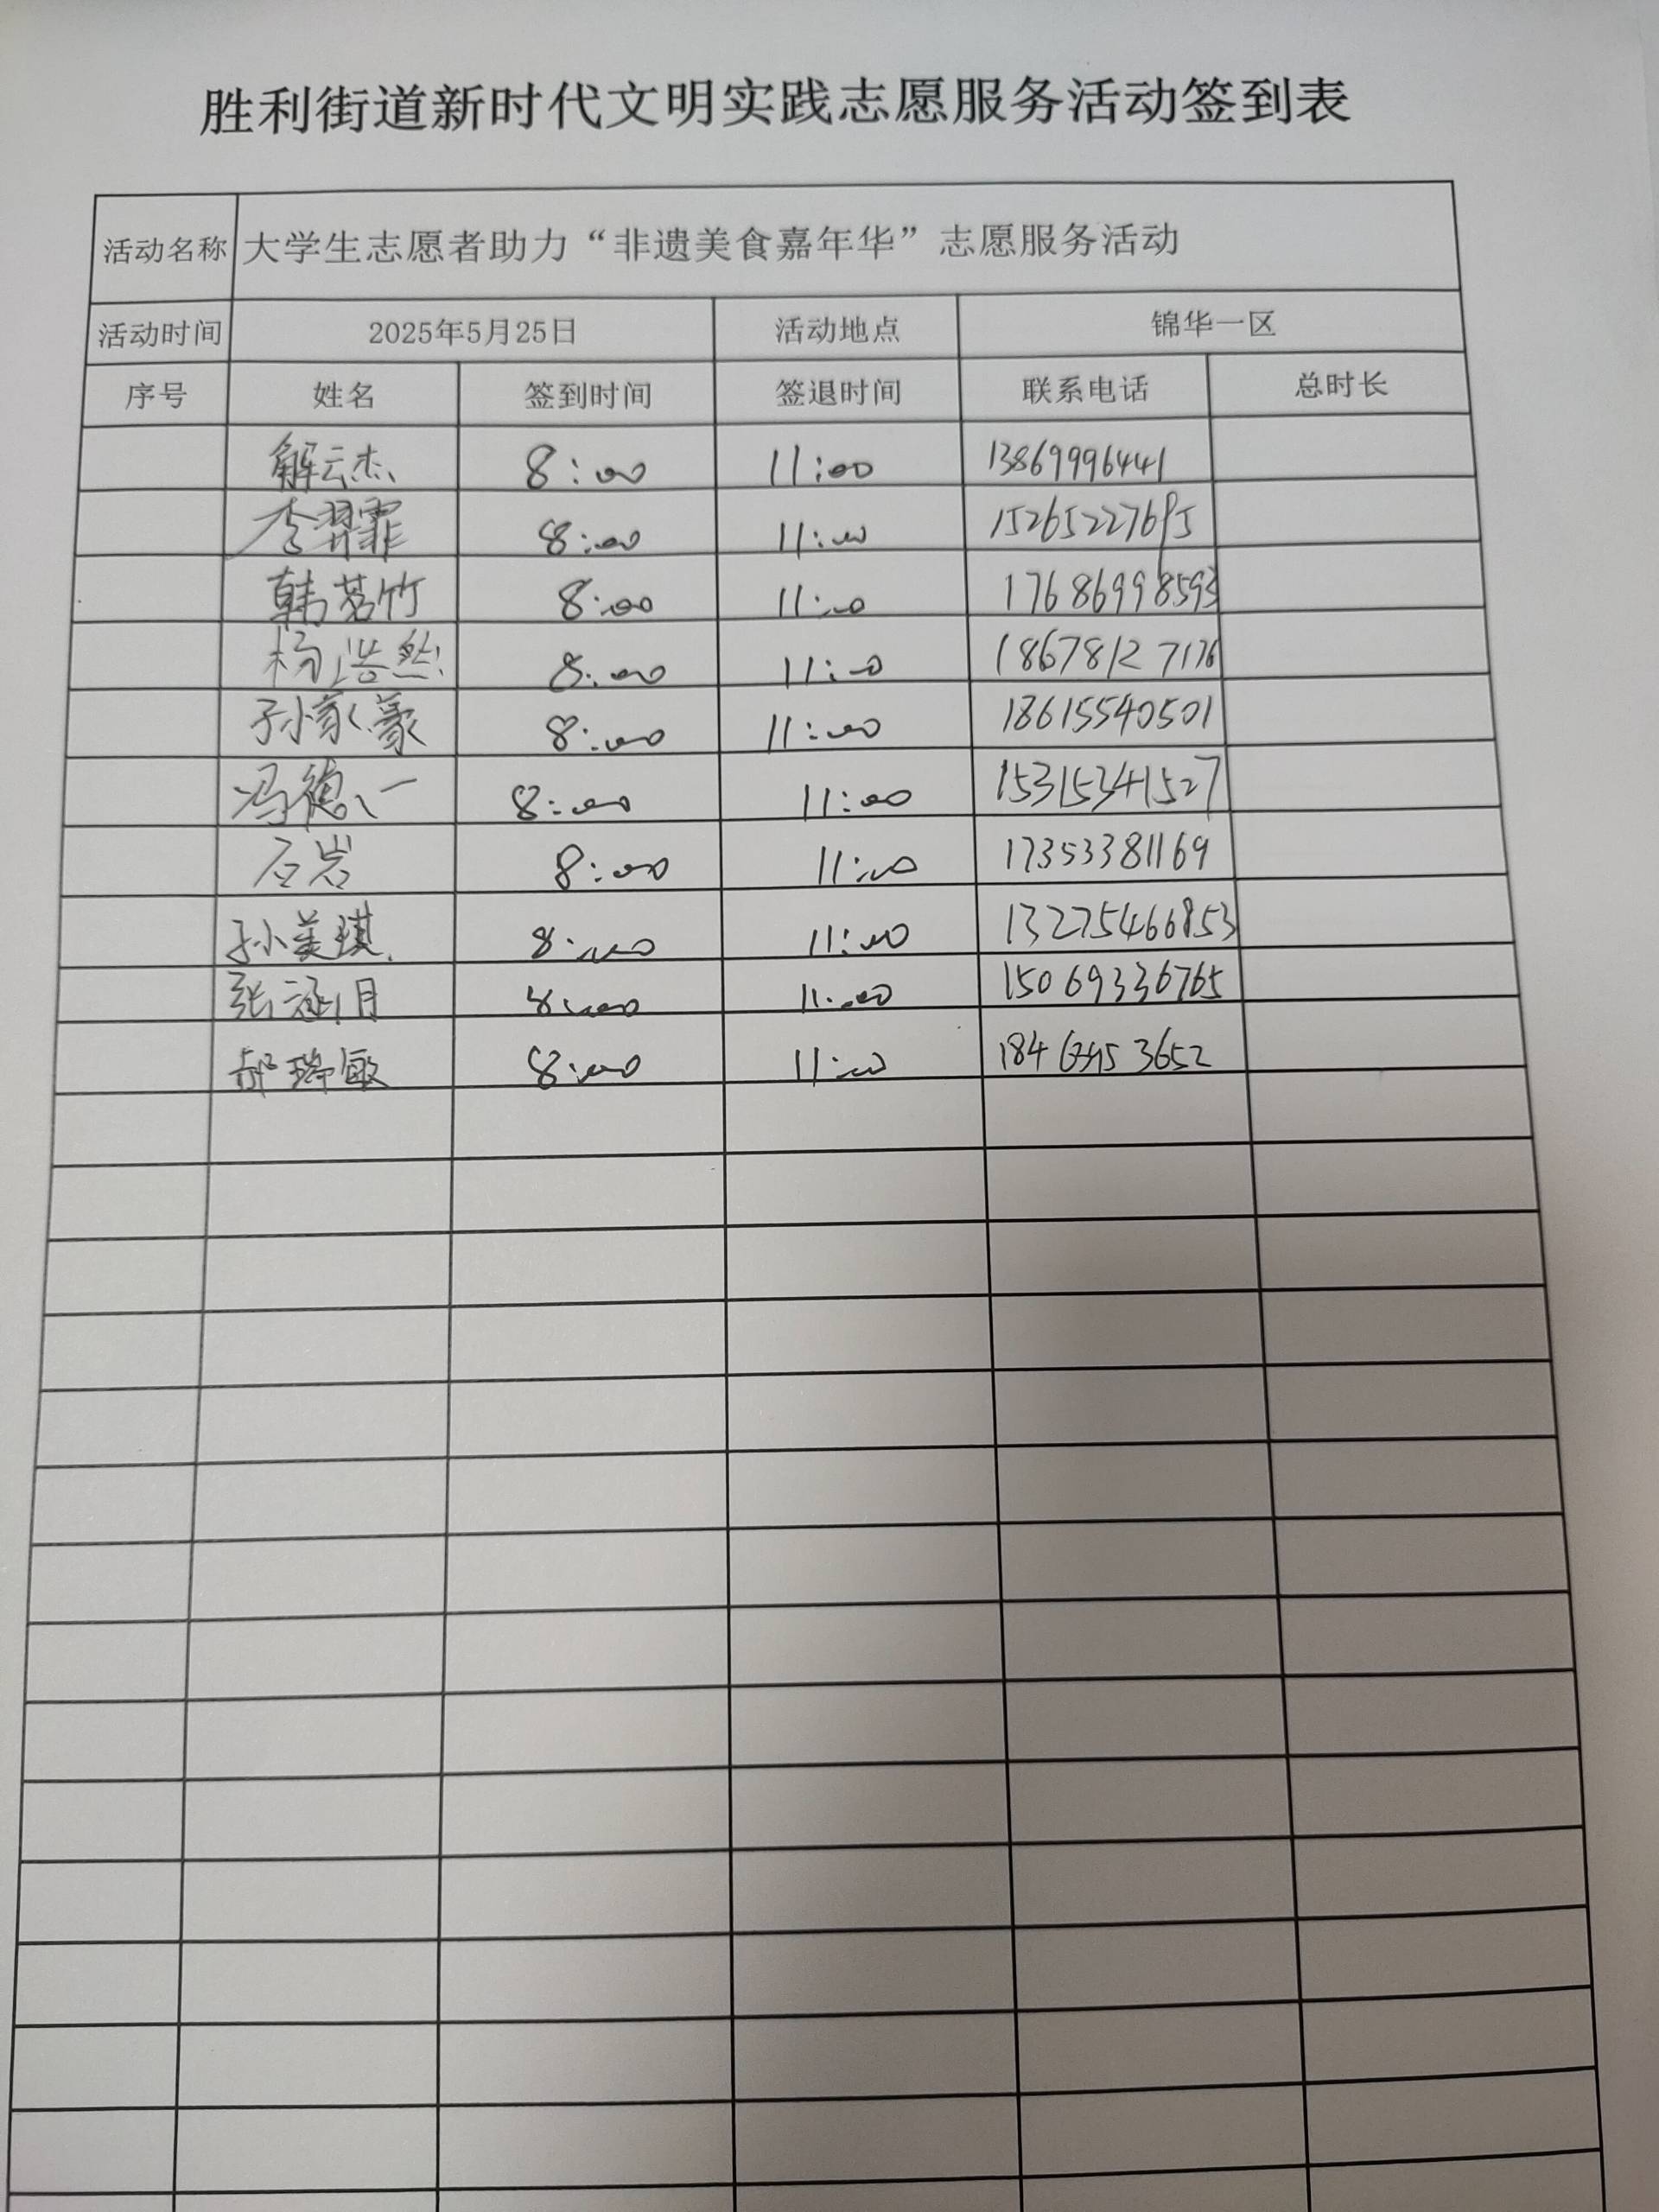 胜利街道新时代文明实践志愿服务活动签到表
活动名称 大学生志愿者助力“非遗美食嘉年华”志愿服务活动
活动时间 2025年5月25日 活动地点 锦华一区
序号 姓名 签到时间 签退时间 联系电话 总时长
解云杰 8:00 11:00 13869996441
李羿霏 8:00 11:00
韩茗竹 8:00 11:00 17686998593
杨浩然 8:00 11:00 18678127176
孙家豪 8:00 11:00 18615540501
冯德一 8:00 11:00 15315341527
石岩 8:00 11:00 17353381169
孙美琪 8:00 11:00 13275466853
张涵月 8:00 11:00 15069336765
郝瑞敏 8:00 11:00